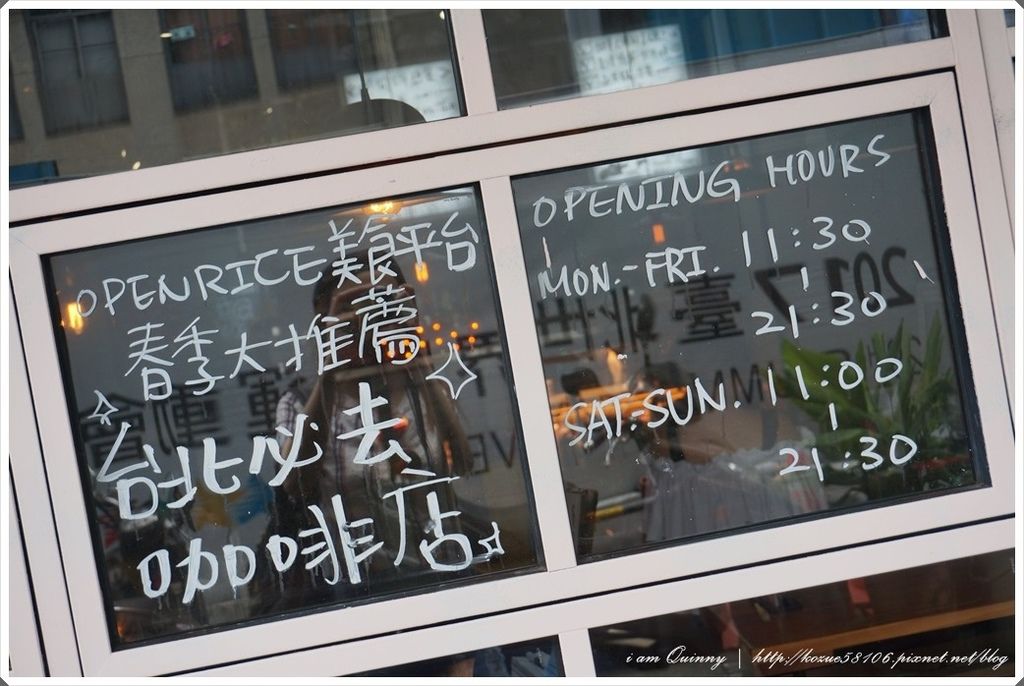 OPENRICE美食平台
春季大推薦
台北必去
咖啡店
OPENING HOURS
MON.-FRI. 11:30
|
21:30
SAT.-SUN. 11:00
|
21:30
2017
i am Quinny | http://kozue58106.pixnet.net/blog